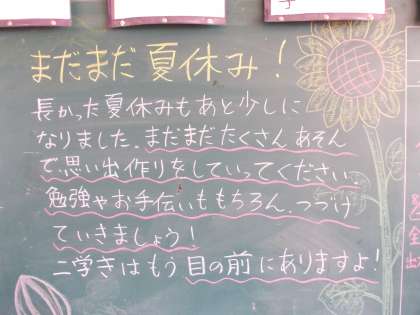 まだまだ夏休み!
長かった夏休みもあと少しに
なりました。まだまだたくさんあそん
で、思い出作りをしていってください。
勉強やお手伝いももちろん、つづけ
ていきましょう!
二学きはもう目の前にありますよ!